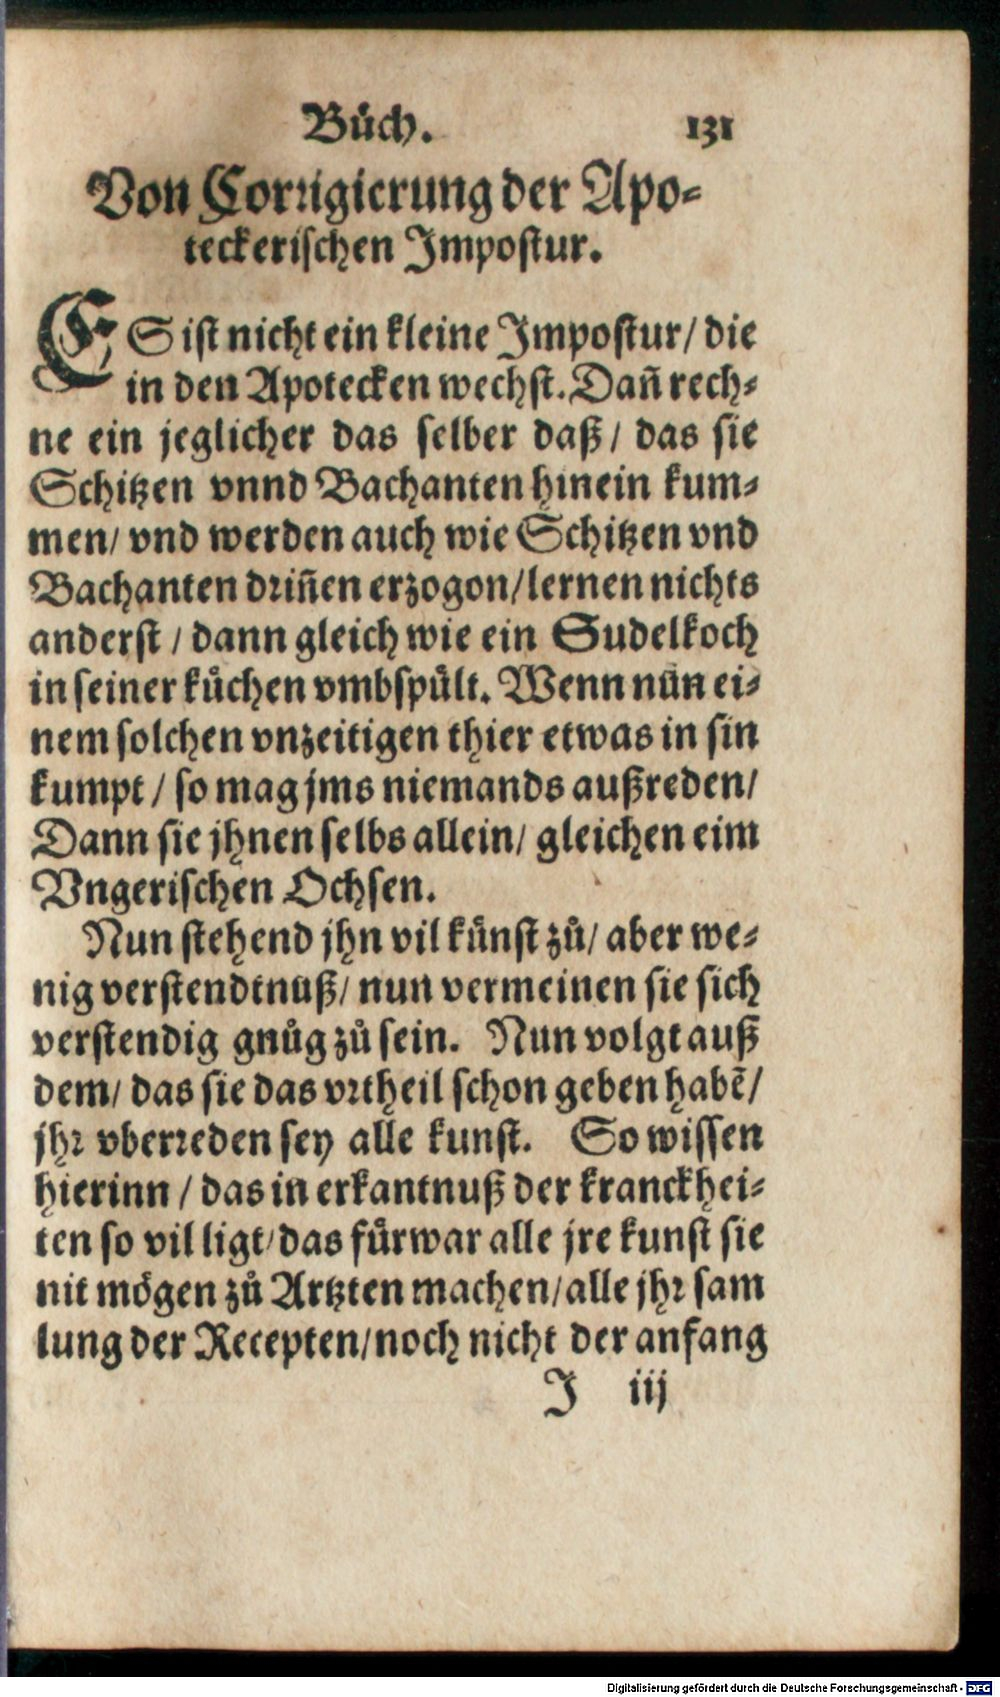 Buͦch. 131
Von Corrigierung der Apo⸗
teckerischen Impostur.
ES ist nicht ein kleine Impostur/ die
in den Apotecken wechst. Dañ rech⸗
ne ein jeglicher das selber daß/ das sie
Schitzen vnnd Bachanten hinein kum⸗
men/ vnd werden auch wie Schitzen vnd
Bachanten driñen erzogon/ lernen nichts
anderst / dann gleich wie ein Sudelkoch
in seiner kuͤchen vmbspuͤlt. Wenn nuͦn ei⸗
nem solchen vnzeitigen thier etwas in sin
kumpt / so mag jms niemands außreden/
Dann sie jhnen selbs allein/ gleichen eim
Vngerischen Ochsen.
Nun stehend jhn vil kuͤnst zuͦ/ aber we⸗
nig verstendtnuß/ nun vermeinen sie sich
verstendig gnuͦg zuͦ sein. Nun volgt auß
dem/ das sie das vrtheil schon geben habẽ/
jhr vberreden sey alle kunst. So wissen
hierinn / das in erkantnuß der kranckhei⸗
ten so vil ligt/ das fuͤrwar alle jre kunst sie
nit moͤgen zuͦ Artzten machen/ alle jhr sam
lung der Recepten/ noch nicht der anfang
J iij
Digitalisierung gefördert durch die Deutsche Forschungsgemeinschaft - DFG